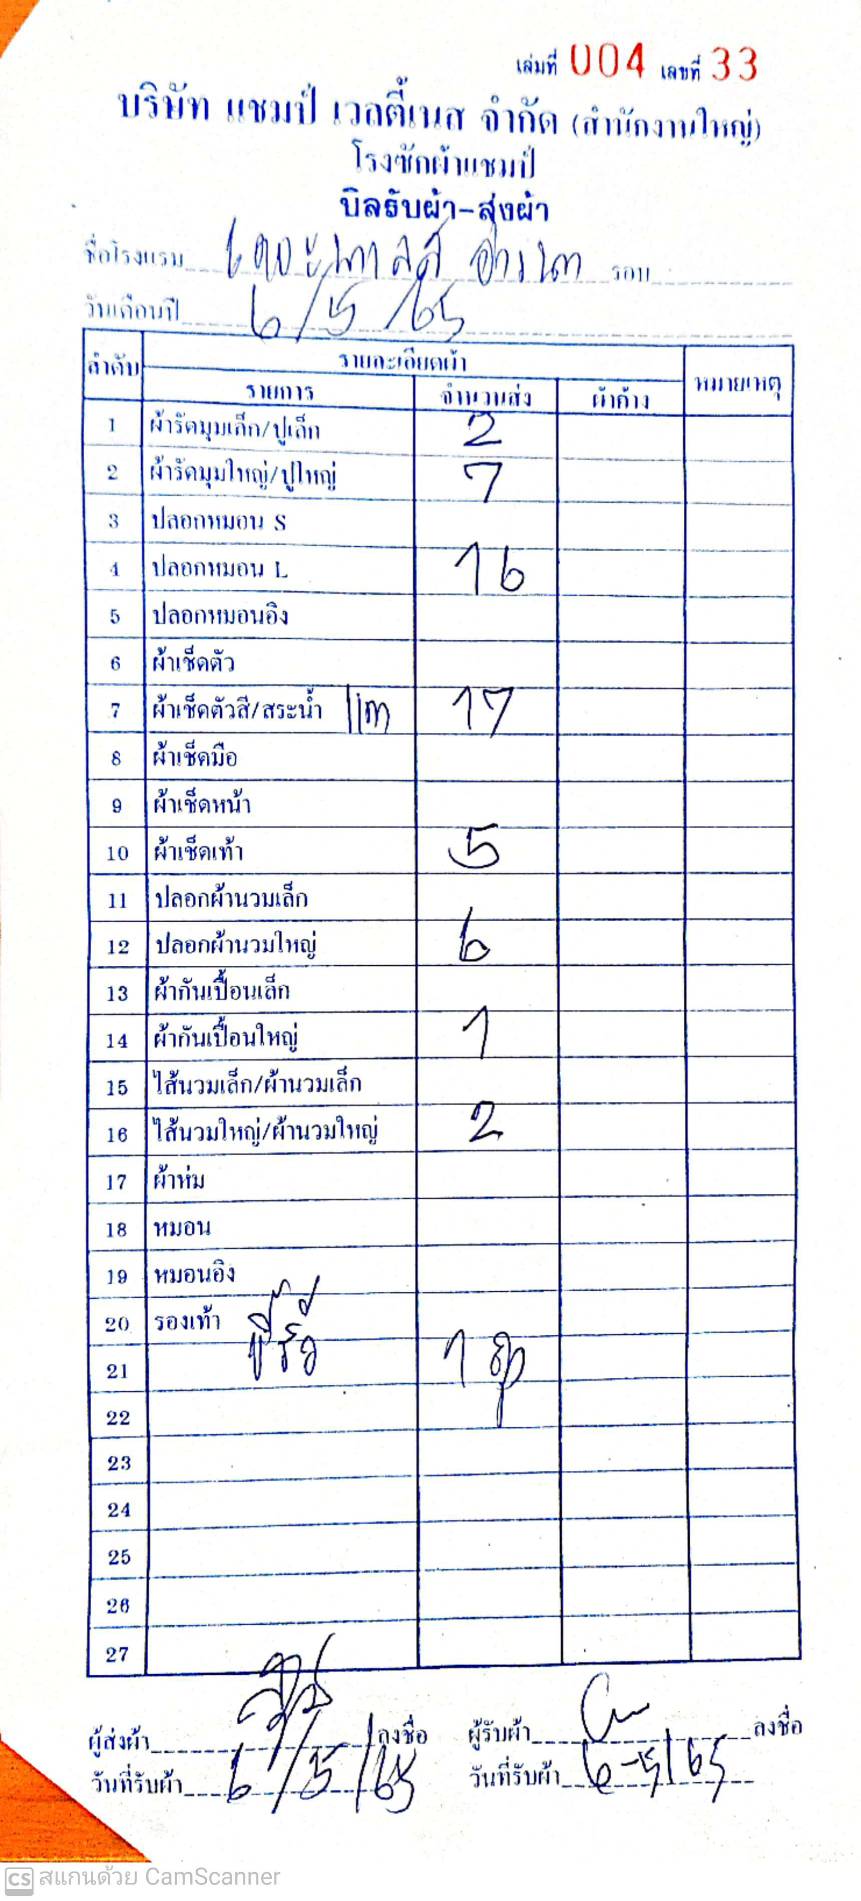 เล่มที่ 004 เลขที่ 33
บริษัท แชมป์ เวลตี้เนส จำกัด (สำนักงานใหญ่)
โรงซักผ้าแชมป์
บิลรับผ้า-ส่งผ้า
ชื่อโรงแรม เดอะพาลส์ อ่าวนาง รอบ
วันเดือนปี 6/5/65
ลำดับ รายละเอียดผ้า หมายเหตุ
รายการ จำนวนส่ง ผ้าค้าง
1 ผ้ารัดมุมเล็ก/ปูเล็ก 2
2 ผ้ารัดมุมใหญ่/ปูใหญ่ 7
3 ปลอกหมอน S
4 ปลอกหมอน L 16
5 ปลอกหมอนอิง
6 ผ้าเช็ดตัว
7 ผ้าเช็ดตัวสี/สระน้ำ 17
8 ผ้าเช็ดมือ
9 ผ้าเช็ดหน้า
10 ผ้าเช็ดเท้า 5
11 ปลอกผ้านวมเล็ก
12 ปลอกผ้านวมใหญ่ 6
13 ผ้ากันเปื้อนเล็ก
14 ผ้ากันเปื้อนใหญ่ 1
15 ไส้นวมเล็ก/ผ้านวมเล็ก
16 ไส้นวมใหญ่/ผ้านวมใหญ่ 2
17 ผ้าห่ม
18 หมอน
19 หมอนอิง
20 รองเท้า
21 1
22
23
24
25
26
27
ผู้ส่งผ้า ลงชื่อ ผู้รับผ้า ลงชื่อ
วันที่รับผ้า 6/5/65 วันที่รับผ้า 6-5/65
CS สแกนด้วย CamScanner